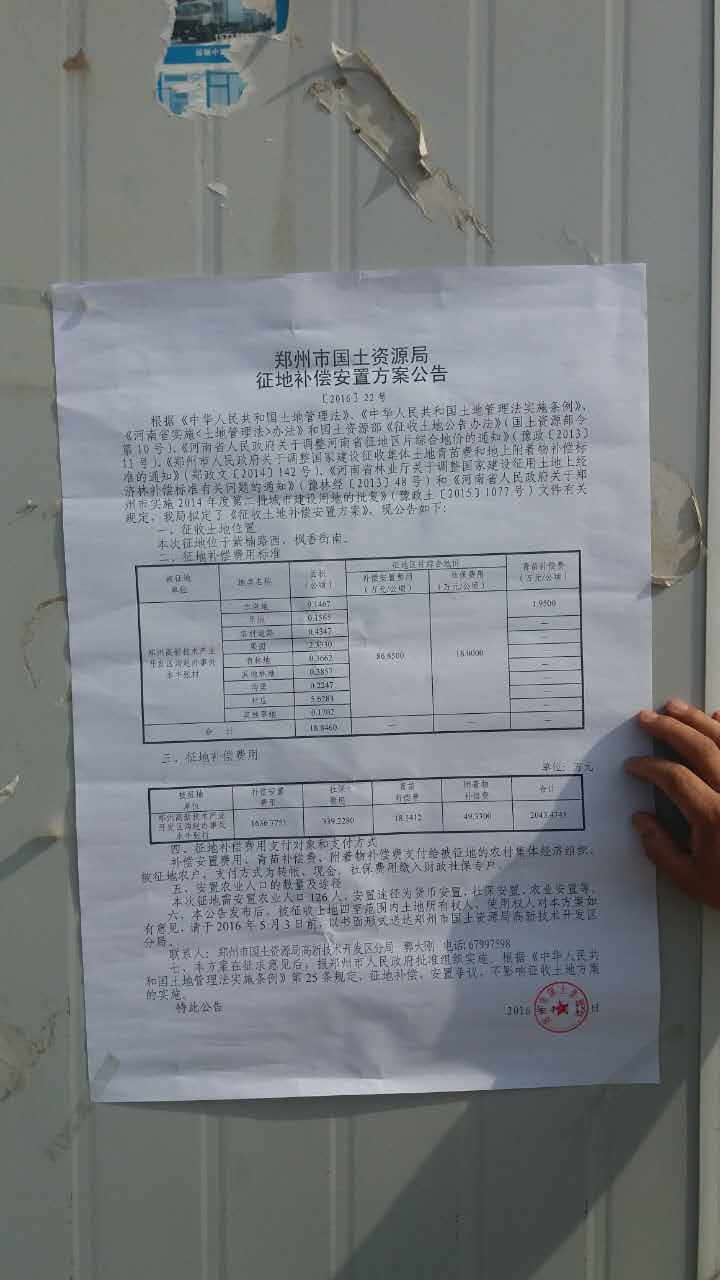 郑州市国土资源局
征地补偿安置方案公告
〔2016〕22号
根据《中华人民共和国土地管理法》、《中华人民共和国土地管理法实施条例》、
《河南省实施<土地管理法>办法》和国土资源部《征收土地公告办法》(国土资源部令
第10号)、《河南省人民政府关于调整河南省征地区片综合地价的通知》(豫政〔2013〕
11号)、《郑州市人民政府关于调整国家建设征收集体土地青苗费和地上附着物补偿标
准的通知》(郑政文〔2014〕142号)、《河南省林业厅关于调整国家建设征收用土地上经
济林补偿标准有关问题的通知》(豫林经〔2013〕48号)和《河南省人民政府关于郑
州市实施2014年度第二批城市建设用地的批复》(豫政土〔2015〕1077号)文件有关
规定,我局拟定了《征收土地补偿安置方案》,现公告如下:
一、征收土地位置
本次征地位于紫楠路西、枫香街南。
二、征地补偿费用标准
被征地单位 地类名称 面积(公顷) 征地区片综合地价 青苗补偿费(万元/公顷)
补偿安置费用(万元/公顷) 社保费用(万元/公顷)
郑州高新技术产业开发区沟赵办事处水牛张村
水浇地 0.1467 86.8500 18.0000 1.9500
0.1565 —
农村道路 0.4347 —
果园 —
有林地 0.3662 —
其他林地 0.2857 —
沟渠 0.2247 —
村庄 5.6283 —
其他草地 —
合 计 18.8460 — — —
三、征地补偿费用
单位:万元
被征地单位 补偿安置费用 社保费用 青苗补偿费 附着物补偿费 合计
郑州高新技术产业开发区沟赵办事处水牛张村 339.2280 49.3300
四、征地补偿费用支付对象和支付方式
补偿安置费用、青苗补偿费、附着物补偿费支付给被征地的农村集体经济组织、
被征地农户,支付方式为转账、现金,社保费用缴入财政社保专户。
五、安置农业人口的数量及途径
本次征地需安置农业人口126人,安置途径为货币安置、社保安置、农业安置等。
六、本公告发布后,被征收土地四至范围内土地所有权人、使用权人对本方案如
有意见,请于2016年5月3日前,以书面形式送达郑州市国土资源局高新技术开发区
分局。
联系人:郑州市国土资源局高新技术开发区分局 郭大刚 电话:67997598
七、本方案在征求意见后,报郑州市人民政府批准组织实施。根据《中华人民共
和国土地管理法实施条例》第25条规定,征地补偿、安置争议,不影响征收土地方案
的实施。
特此公告
2016年 日